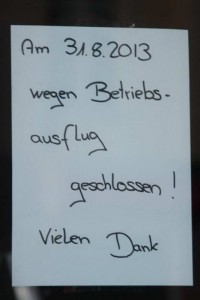 Am 31.8.2013
wegen Betriebs-
ausflug
geschlossen!
Vielen Dank